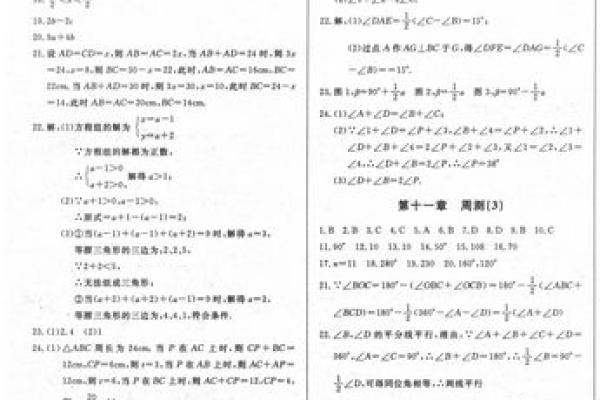 19. 2b－2c
20. 8a＋4b
21. 设 AD=CD=x, 则 AB=AC=2x, 当 AB+AD=24 时, 则 3x
=24, x=8, 则 BC=30-x=22, 此时, AB=AC=16cm, BC=
22cm. 当 AB+AD=30 时, 则 3x=30, x=10, 此时 BC=24-x
=14, 此时 AB=AC=20cm, BC=14cm.
22. 解: (1)方程组的解为 {x=a-1 y=a+2
∵方程组的解都为正数,
∴{a-1>0 a+2>0, 解得 a>1;
(2)∵a+1>0, a-1>0,
∴原式=a+1-(a-1)=2;
(3)①当(a-1)+(a-1)+(a+2)=9 时, 解得 a=3,
等腰三角形的三边为, 2, 2, 5,
∵2+2<5,
∴无法组成三角形;
②当(a+2)+(a+2)+(a-1)=9 时, 解得 a=2,
等腰三角形的三边为, 4, 4, 1, 符合条件.
23. (1)2, 4 (2)1
24. (1)△ABC 周长为 24cm, 当 P 在 AC 上时, 则 CP+BC=
12cm, CP=6cm, 则 t=3, 当 P 在 AB 上时, 则 AC+AP=
12cm, 则 t=6, 当 P 在 BC 上时, 则 AC+CP=12, CP=4,
22. 解: (1)∠DAE=1/2(∠C-∠B)=15°;
(2)过点 A 作 AG⊥BC 于 G, 得∠DFE=∠DAG=1/2(∠C
-∠B)==15°.
23. 图 1, β=90°+1/2α 图 2, β=1/2α 图 3, β=90°-1/2α
24. (1)∠A+∠D=∠B+∠C;
(2)∵∠1+∠D=∠P+∠3, ∠B+∠4=∠P+∠2, ∴∠1+
∠D+∠B+∠4=∠2∠P+∠2+∠3, 又∠1=∠2, ∠3=
∠4, ∴∠D+∠B=2∠P, ∴∠P=38°
(3)∠D+∠B=2∠P.
第十一章 周测(3)
1. B 2. B 3. C 4. C 5. A 6. B 7. D 8. D 9. B 10. C
11. 90° 12. 10 13. 10 14. 50° 15. 108 16. 70
17. n=11 18. 280° 19. 230 20. 160°, 120°
21. ∵∠BOC=180°-(∠OBC+∠OCB)=180°-1/2(∠ABC+
∠BCD)=180°-1/2(360°-∠A-∠D)=1/2(∠A+∠D)
22. ∠B, ∠D 的平分线平行, 理由: ∵∠A+∠B+∠C+∠D=
360°, ∠A=∠C=90°, ∴∠B+∠D=180°, ∴1/2∠B=90°-
1/2∠D, 可得同位角相等, ∴两线平行